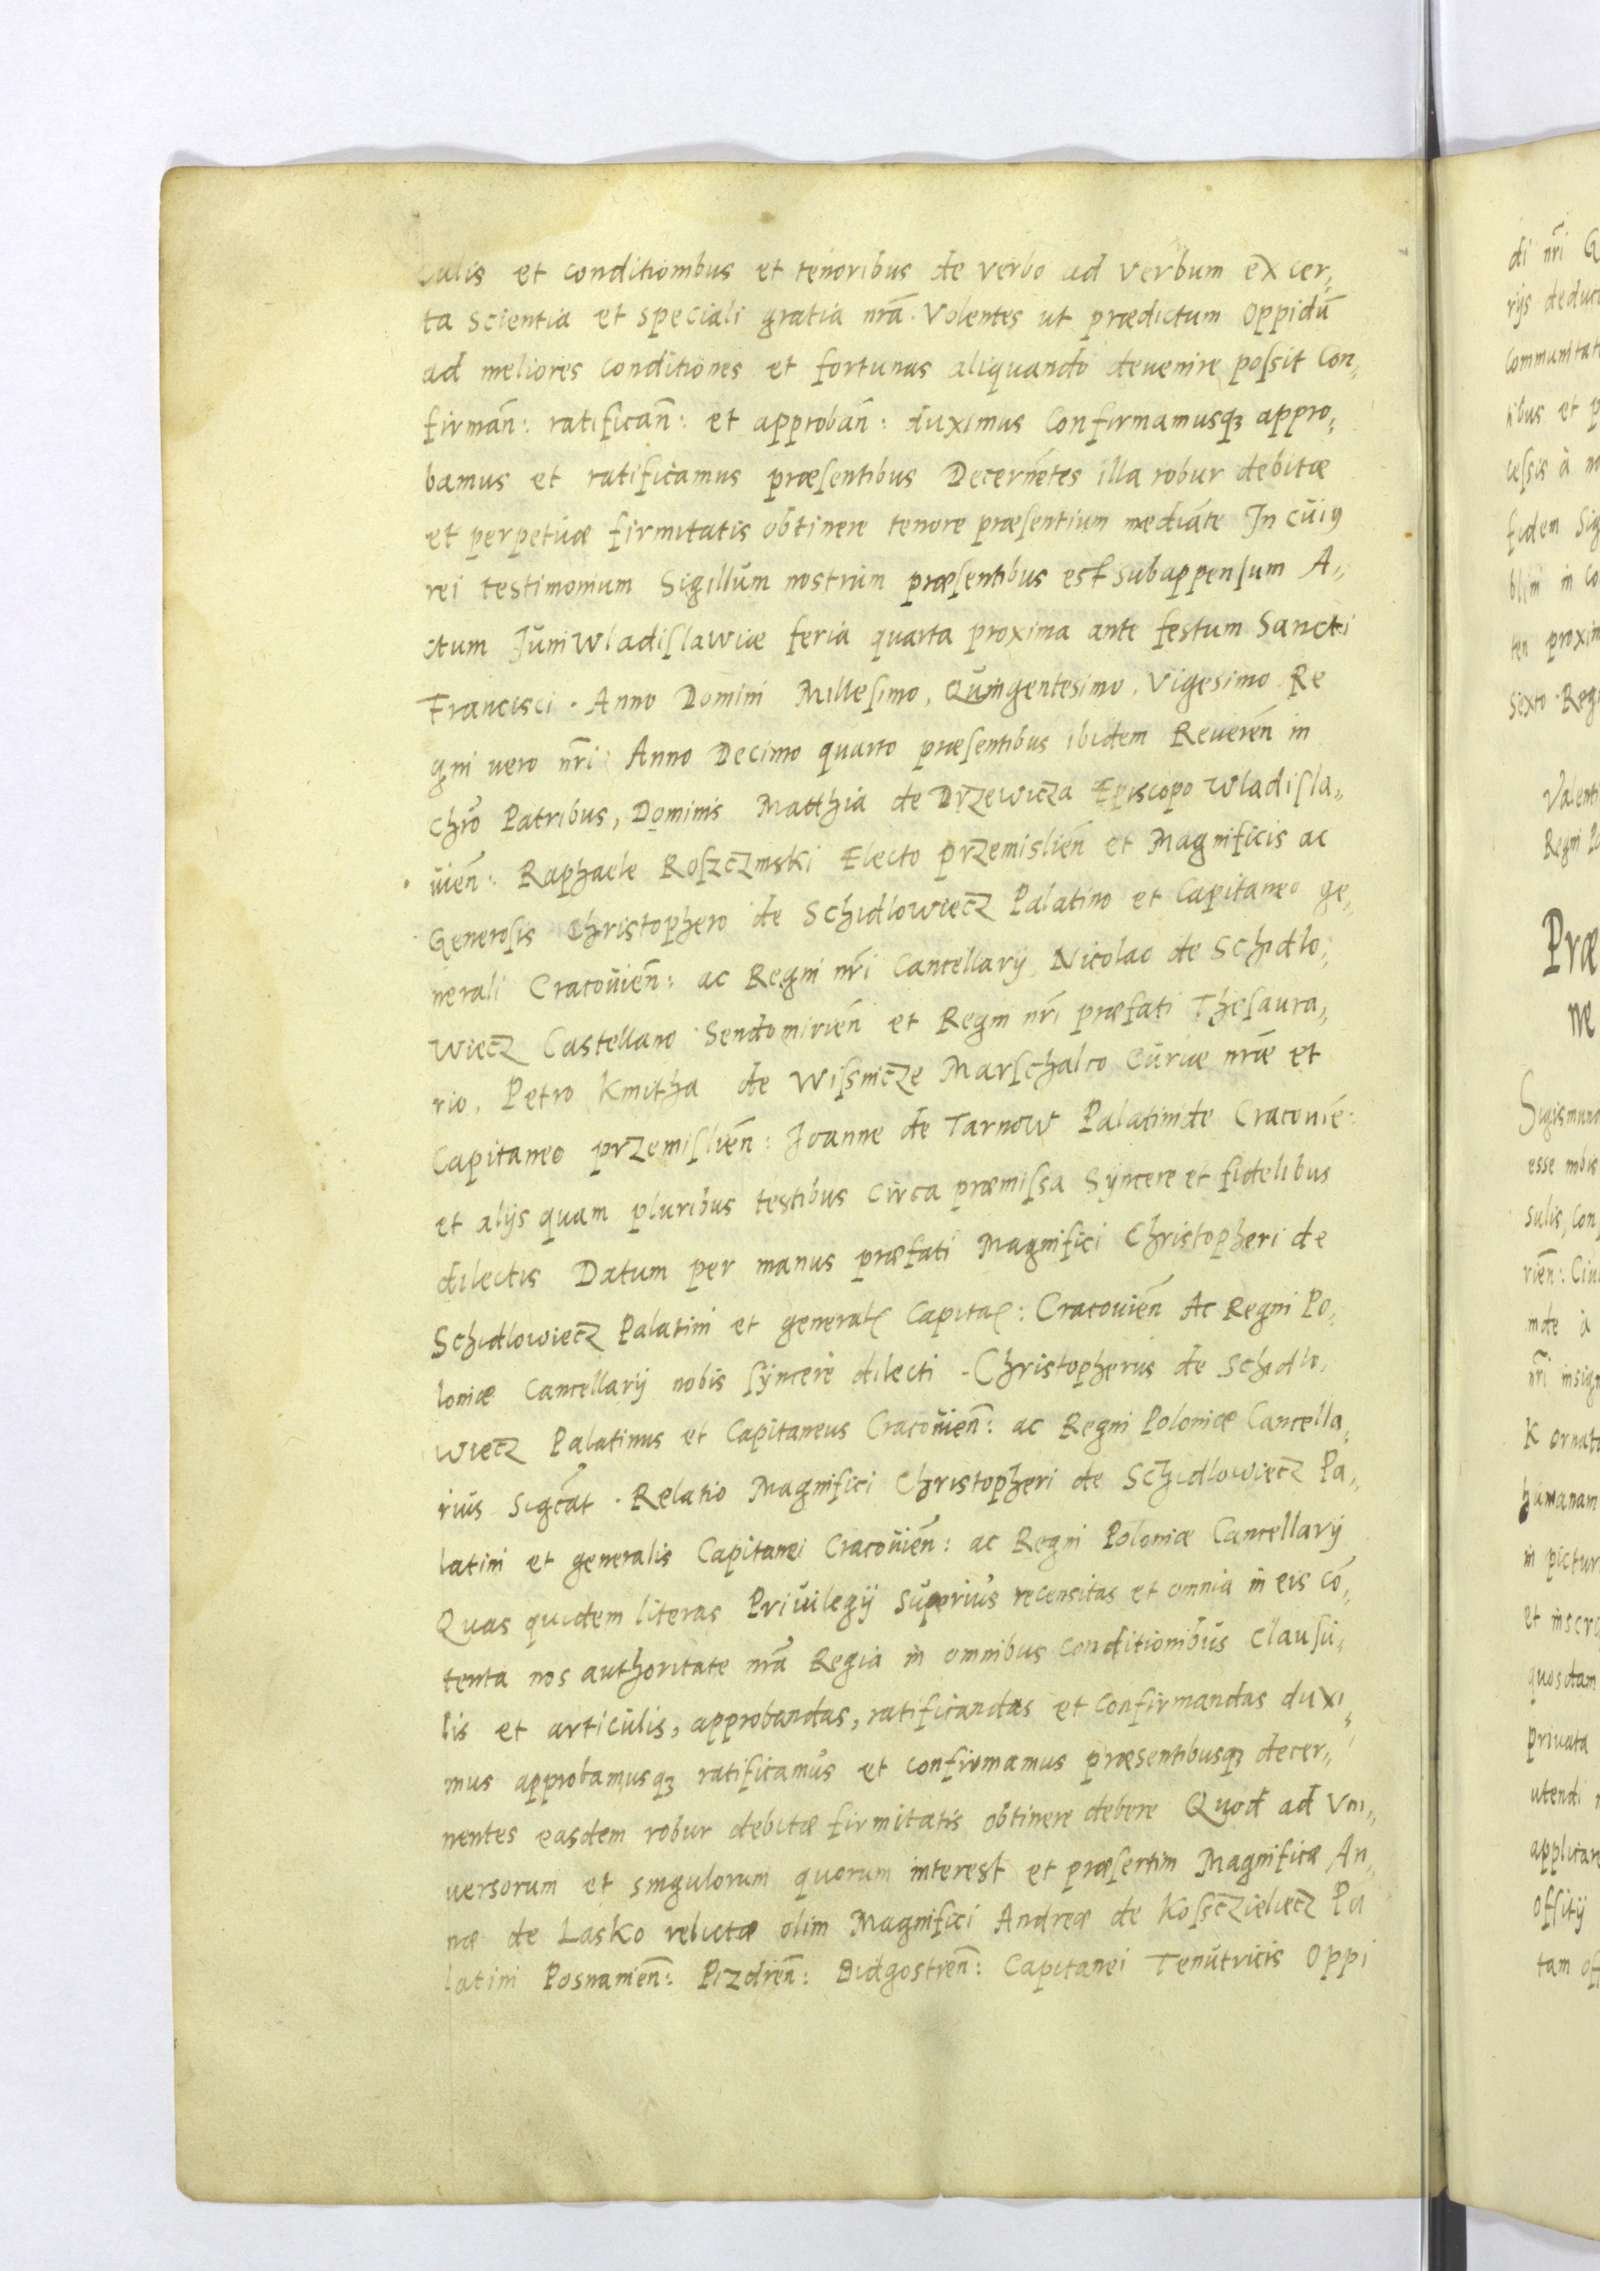 culis et conditionibus et tenoribus de verbo ad verbum ex cer„
ta scientia et speciali gratia nr̃a. Volentes ut prædictum Oppidũ
ad meliores conditiones et fortunas aliquando devenire poſsit Con„
firmañ: ratificañ: et approbañ: duximus Confirmamusqꝫ appro„
bamus et ratificamus præſentibus Decernẽtes illa robur debitæ
et perpetuæ firmitatis obtinere tenore præſentium mediãte In cuiꝰ
rei testimonium Sigillum nostrum præſentibus est subappenſum A„
ctum Juniwladiſlawiæ feria quarta proxima ante festum Sancti
Francisci. Anno Domini Milleſimo, Quingentesimo, Vigesimo Re
gni uero nr̃i Anno Decimo quarto præſentibus ibidem Reuereñ in
chr̃o Patribus, Dominis Matthia de Drzewicza Episcopo Wladiſla„
uieñ: Raphaele Roſzczinski Electo przemislieñ et Magnificis ac
Generoſis Christophero de Schidlowiecz Palatino et Capitaneo ge„
nerali Cracouieñ: ac Regni nr̃i Cancellarij Nicolao de Schidlo„
wiecz Castellano Sendomirieñ et Regni nr̃i præfati Theſaura„
rio, Petro Kmitha de Wiſnicze Marſchalco Curiæ nr̃æ et
Capitaneo przemiſlieñ: Joanne de Tarnow Palatinide Cracouiẽ:
et alijs quam pluribus testibus circa præmiſsa Syncere et fidelibus
dilectis Datum per manus præfati Magnifici Christopheri de
Schidlowiecz Palatini et general Capita: Cracouieñ Ac Regni Po„
loniæ Cancellarij nobis ſyncere dilecti - Christopherus de Schidlo„
wiecz Palatinus et Capitaneus Cracouieñ: ac Regni Poloniæ Cancella„
rius Sigc̃at. Relatio Magnifici Christopheri de Schidlowiecz Pa„
latini et generalis Capitanei Cracouieñ: ac Regni Poloniæ Cancellarij
Quas quidem literas Priuilegij Superius recensitas et omnia in eis cõ„
tenta nos authoritate nr̃a Regia in omnibus Conditionibus clauſu„
lis et articulis, approbandas, ratificandas et confirmandas duxi„
mus approbamusqꝫ ratificamus et confirmamus præsentibusqꝫ decer„
nentes easdem robur debitæ firmitatis obtinere debere Quod ad Vni„
uersorum et singulorum quorum interest et præſertim Magnificæ An„
næ de Lasko relictæ olim Magnifici Andreæ de Koſscziełiecz Pa
latini Posnanieñ: Pizdreñ: Bidgostieñ: Capitanei Tenutricis Oppi
di nr̃i
rijs deduc
Communitat
ibus et p
ceſsis à
fidem Sig
in
ten proxim
Sexto. Reg
Valenti
Regni
Præ
ne
Sigismund
esse nobis
sulis, con
rieñ: Ciu
inde
nr̃i insign
K ornat
humanam
in pictur
et inscr
quosdam
priuata
utendi
applicare
offitij
tam of